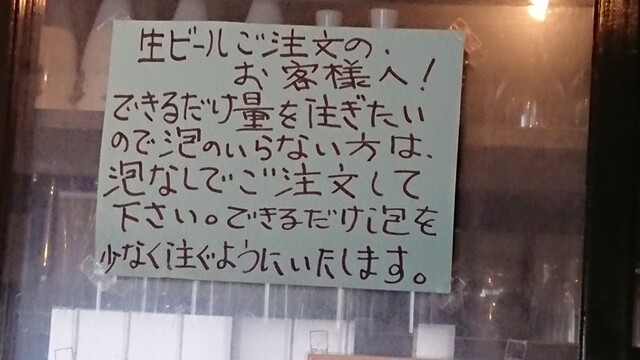 生ビールご注文の、
お客様へ!
できるだけ量を注ぎたい
ので泡のいらない方は、
泡なしでご注文して
下さい。できるだけ泡を
少なく注ぐようにいたします。